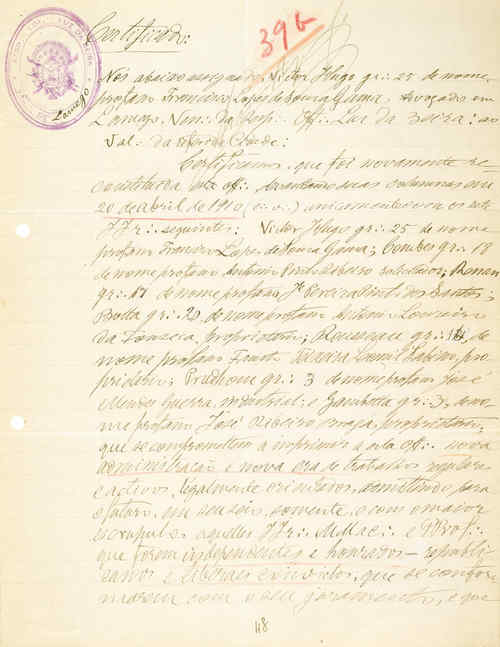 Certificado:
39 b
Lamego
Nós abaixo assignados, Victor Hugo gr∴ 25 de nome
profano Francisco Lopes de Souza Gama, Advogado em
Lamego, Ven∴ da Resp∴ Off∴ Luz da Beira∴ ao
Val∴ da
Certificamos que foi novamente re-
constituida esta off∴ levantando suas columnas em
20 de abril de 1910 (e∴ v∴) unicamente com os sete
IIr∴ seguintes: Victor Hugo gr∴ 25 de nome
profano Francisco Lopes de Souza Gama; gr∴ 18
de nome profano Antonio Ribeiro solicitador; Renan
gr∴ de nome profano Pereira Pinto dos Santos;
Botto gr∴ 20 de nome profano Antonio Loureiro
da Fonseca, proprietario; Rousseau gr∴ de
nome profano Teixeira Sabino, pro-
prietario; Prudhome gr∴ 3 de nome profano José
Mendes Guerra, industrial; e Gambetta gr∴ 3, de no-
me profano José Ribeiro Braga, proprietario;
que se comprometem a imprimir a esta off∴ nova
administração e nova era de trabalhos regulares
e activos, legalmente admittindo para
o futuro, em seu seio, somente, e com o maior
escrupulo aquelles IIr∴ MMaç∴ e PProf∴
que forem independentes e honrados – republi-
canos e liberaes convictos, que se confor-
marem com o seu juramento, e que
48